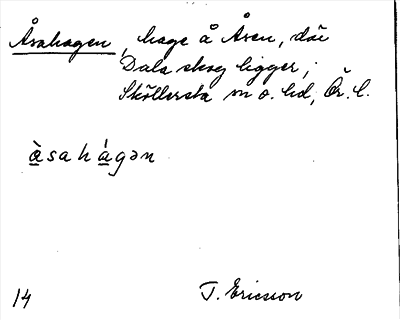 Åsahagen, hage å Åsen, där
Dala skog ligger;
Sköllersta sn o. hd, Ör. l.
àsahágən
14
T. Ericsson